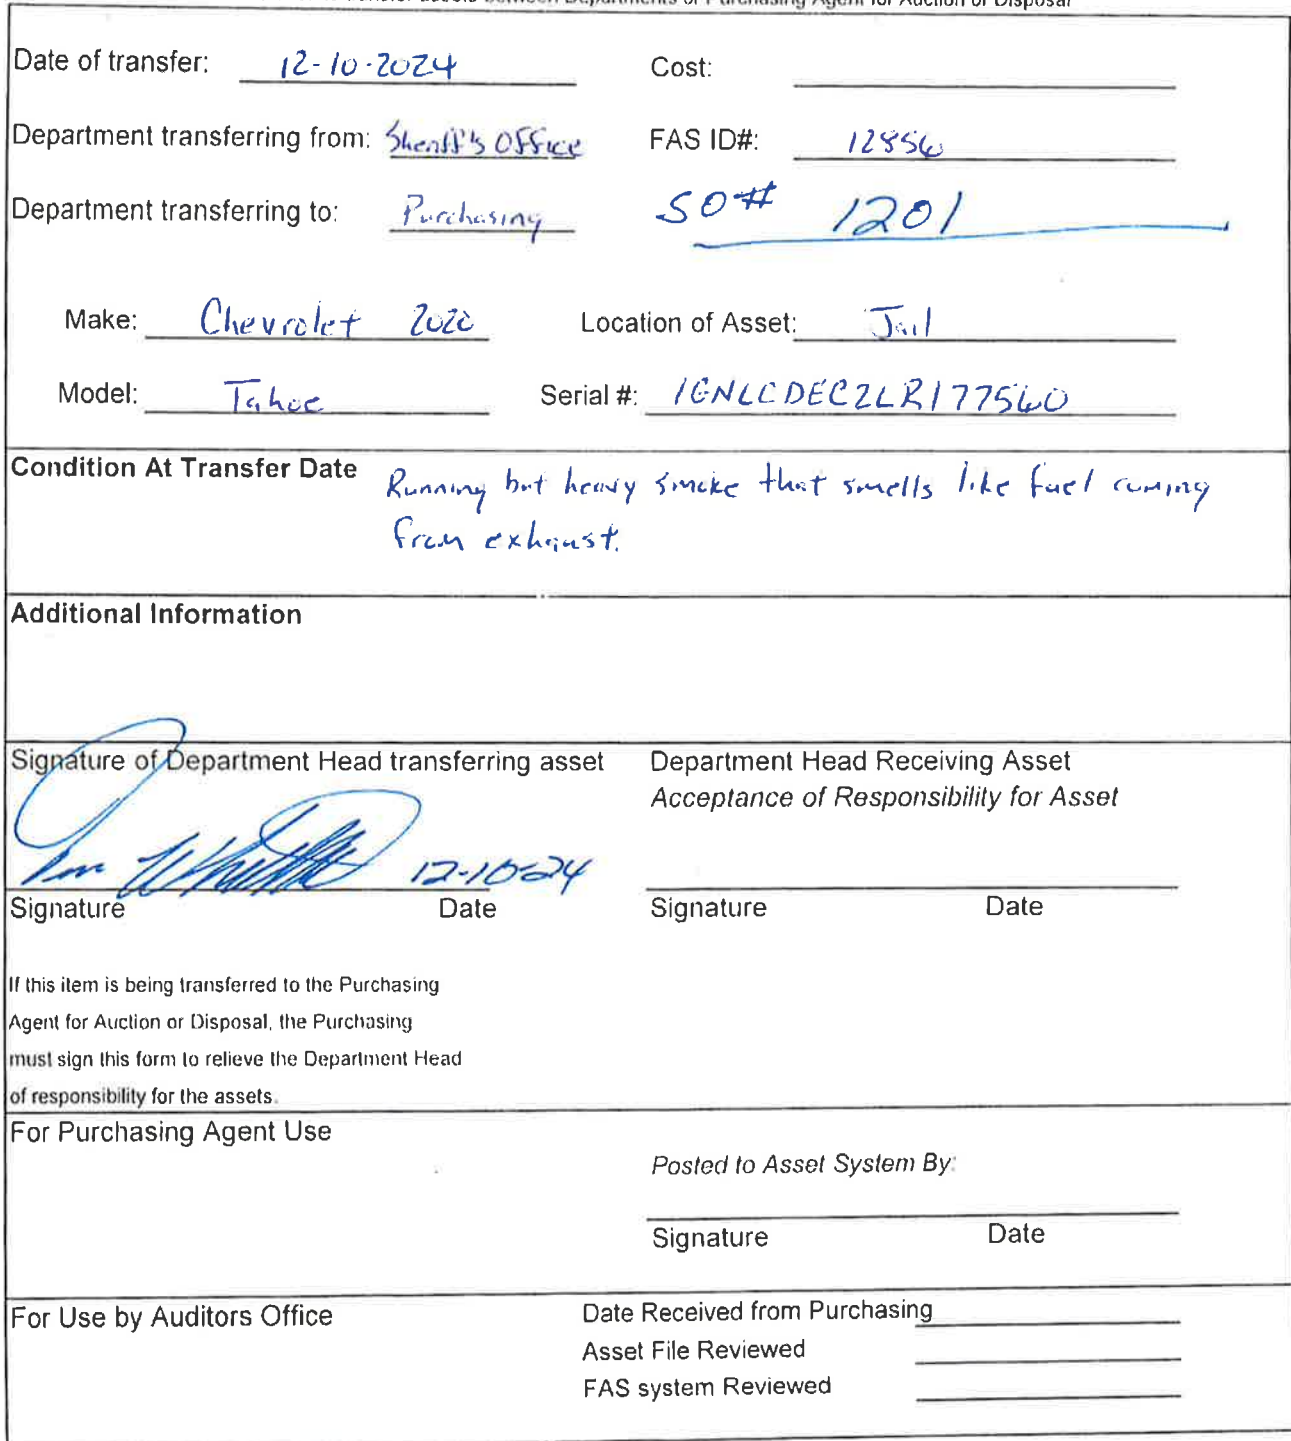 between Departments or Purchasing Agent for Auction or Disposal
Date of transfer: 12-10-2024 Cost:
Department transferring from: Sheriff's Office FAS ID#: 12856
Department transferring to: Purchasing SO# 1201
Make: Chevrolet 2020 Location of Asset: Jail
Model: Tahoe Serial #: 1GNLCDEC2LR177560
Condition At Transfer Date Running but heavy smoke that smells like fuel coming
from exhaust.
Additional Information
Signature of Department Head transferring asset Department Head Receiving Asset
Acceptance of Responsibility for Asset
12-10-24
Signature Date Signature Date
If this item is being transferred to the Purchasing
Agent for Auction or Disposal, the Purchasing
must sign this form to relieve the Department Head
of responsibility for the assets.
For Purchasing Agent Use
Posted to Asset System By:
Signature Date
For Use by Auditors Office Date Received from Purchasing
Asset File Reviewed
FAS system Reviewed